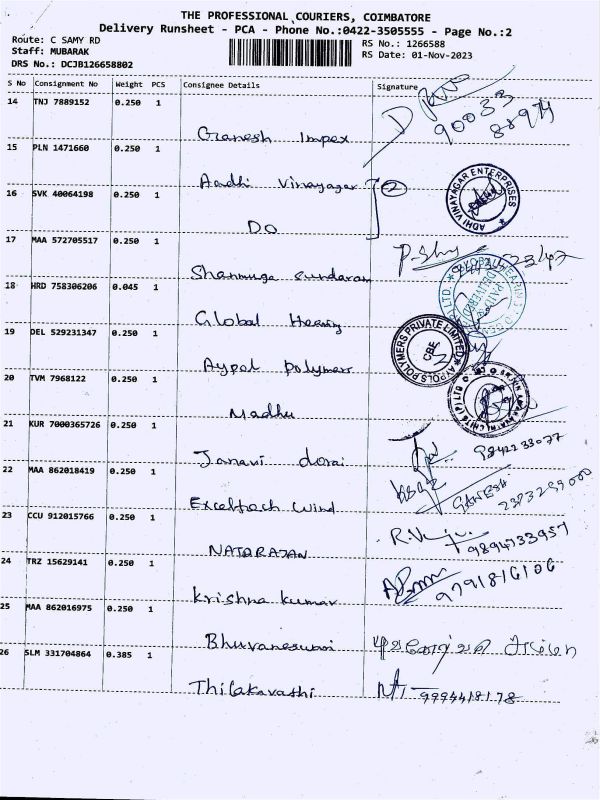 THE PROFESSIONAL COURIERS, COIMBATORE
Delivery Runsheet - PCA - Phone No.:0422-3505555 - Page No.:2
Route: C SAMY RD
Staff: MUBARAK
DRS No.: DCJB126658802
RS No.: 1266588
RS Date: 01-Nov-2023
S No Consignment No Weight PCS Consignee Details Signature
14 TNJ 7889152 0.250 1
90033
Ganesh Impex
15 PLN 1471660 0.250 1
Aadhi Vinayagar
2
16 SVK 40064198 0.250 1
DO
ADHI VINAYAGAR ENTERPRISES
17 MAA 572705517 0.250 1
Shanmuga Sundaram
18 HRD 758306206 0.045 1
Global Hearing
19 DEL 529231347 0.250 1
Aypol polymers
POLYMERS PRIVATE LIMITED
CBE
20 TVM 7968122 0.250 1
Madhu
21 KUR 7000365726 0.250 1
Janavi dorai
9842233077
22 MAA 862018419 0.250 1
Exceltech Wind
GANESH
23 CCU 912015766 0.250 1
NATARAJAN
9894733957
24 TRZ 15629141 0.250 1
Krishna Kumar
9791816106
25 MAA 862016975 0.250 1
Bhuvaneswari
26 SLM 331704864 0.385 1
Thilakavathi
9994418178